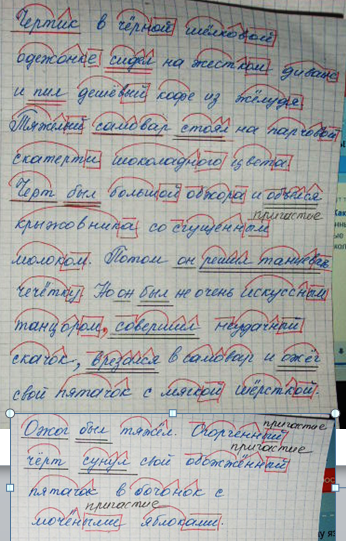 Чертик в чёрной шёлковой
одежонке сидел на жесткой диване
и пил дешёвый кофе из жёлудя.
Тяжёлый самовар стоял на парчовой
скатерти шоколадного цвета.
Черт был большой обжора и объелся
причастие
крыжовника со сгущенным
молоком. Потом он решил танцевать
чечётку. Но он был не очень искусным
танцором, совершил неудачный
скачок, врезался в самовар и ожёг
свой пятачок с мягкой шёрсткой.
причастие
Ожог был тяжёл. Огорченный
причастие
чёрт сунул свой обожжённый
пятачок в бочонок с
причастие
мочёными яблоками.